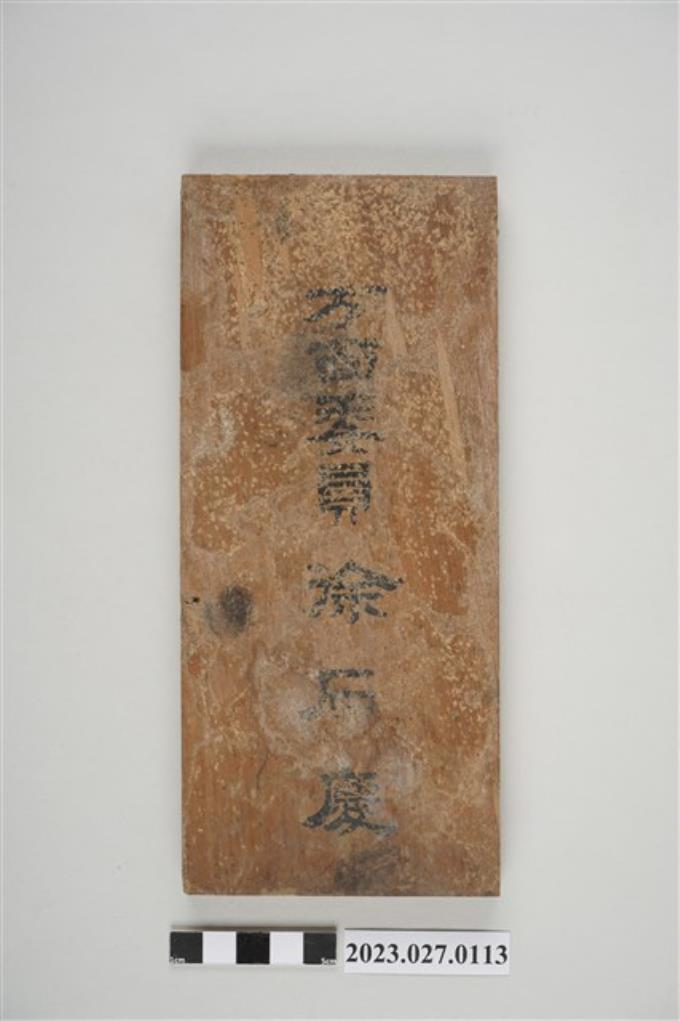 方面委員 涂石慶
0cm 5cm
2023.027.0113